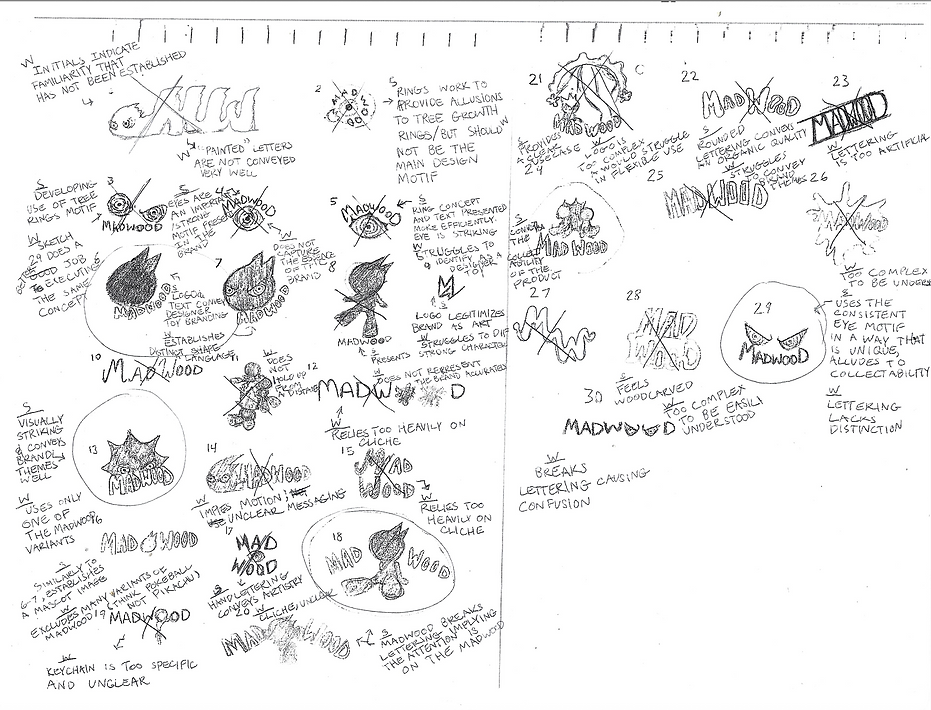 W
INITIALS INDICATE
FAMILIARITY THAT
HAS NOT BEEN ESTABLISHED
MW
W
"PAINTED" LETTERS
ARE NOT CONVEYED
VERY WELL
2
S
RINGS WORK TO
PROVIDE ALLUSIONS
TO TREE GROWTH
RINGS/BUT SHOULD
NOT BE THE
MAIN DESIGN
MOTIF
S
DEVELOPING
USE OF TREE
RINGS MOTIF
W
SKETCH
29 DOES A
GOOD JOB
EXECUTING
THE SAME
CONCEPT
3
MADWOOD
S
EYES ARE
AN IMPORTANT
/STRONG
MOTIF
IN THE
BRAND
4
MADWOOD
W
DOES NOT
CAPTURE
THE ESSENCE
OF THE
BRAND
5
MADWOOD
S
RING CONCEPT
AND TEXT PRESENTED
MORE EFFICIENTLY.
EYE IS STRIKING
W
STRUGGLES TO
IDENTIFY AS A
DESIGNER
TOY
6
MADWOOD
7
MADWOOD
S
LOGO &
TEXT CONVEY
DESIGNER
TOY BRANDING
W
ESTABLISHES
DISTINCT SHAPE
LANGUAGE
8
MADWOOD
S
PRESENTS
STRONG CHARACTER
9
S
LOGO LEGITIMIZES
BRAND AS ART
W
STRUGGLES TO
10
MADWOOD
11
W
DOES
NOT
HOLD UP
FROM
A DISTANCE
12
MADW D
W
DOES NOT REPRESENT
THE BRAND ACCURATELY
W
RELIES TOO HEAVILY ON
CLICHE
S
VISUALLY
STRIKING
& CONVEYS
BRAND
THEMES
WELL
W
USES ONLY
ONE OF
THE MADWOOD
VARIANTS
13
MADWOOD
14
MADWOOD
W
IMPLIES MOTION,
UNCLEAR MESSAGING
15
MAD
WOOD
W
RELIES TOO
HEAVILY ON
CLICHE
16
MAD WOOD
S
SIMILARLY TO
6-7, ESTABLISHES
A MASCOT IMAGE
W
EXCLUDES MANY VARIANTS OF
MADWOOD (THINK POKEBALL
NOT PIKACHU)
17
MAD
WOOD
S
HANDLETTERING
CONVEYS ARTISTRY
W
CLICHE, UNCLEAR
18
MAD WOOD
S
MADWOOD BREAKS
LETTERING IMPLYING
THE ATTENTION IS
ON THE MADWOOD
19
MADWOOD
W
KEYCHAIN IS TOO SPECIFIC
AND UNCLEAR
20
MAD WOOD
21
C
MADWOOD
S
PROVIDES
A CLEAR
USECASE
W
LOGO IS
TOO COMPLEX
& WOULD STRUGGLE
IN FLEXIBLE USE
22
MADWOOD
S
ROUNDED
LETTERING CONVEYS
AN ORGANIC QUALITY
W
STRUGGLES
TO CONVEY
BRAND
THEMES
23
MADWOOD
W
LETTERING
IS TOO ARTIFICIAL
24
MADWOOD
S
THE
OF THE
PRODUCT
25
MADWOOD
26
MADWOOD
W
TOO COMPLEX
TO BE
27
28
MAD
WOOD
S
FEELS
WOODCARVED
W
TOO COMPLEX
TO BE EASILY
UNDERSTOOD
29
MADWOOD
S
USES THE
CONSISTENT
EYE MOTIF
IN A WAY THAT
IS UNIQUE,
ALLUDES TO
COLLECTABILITY
W
LETTERING
LACKS
DISTINCTION
30
MADWOOD
W
BREAKS
LETTERING CAUSING
CONFUSION